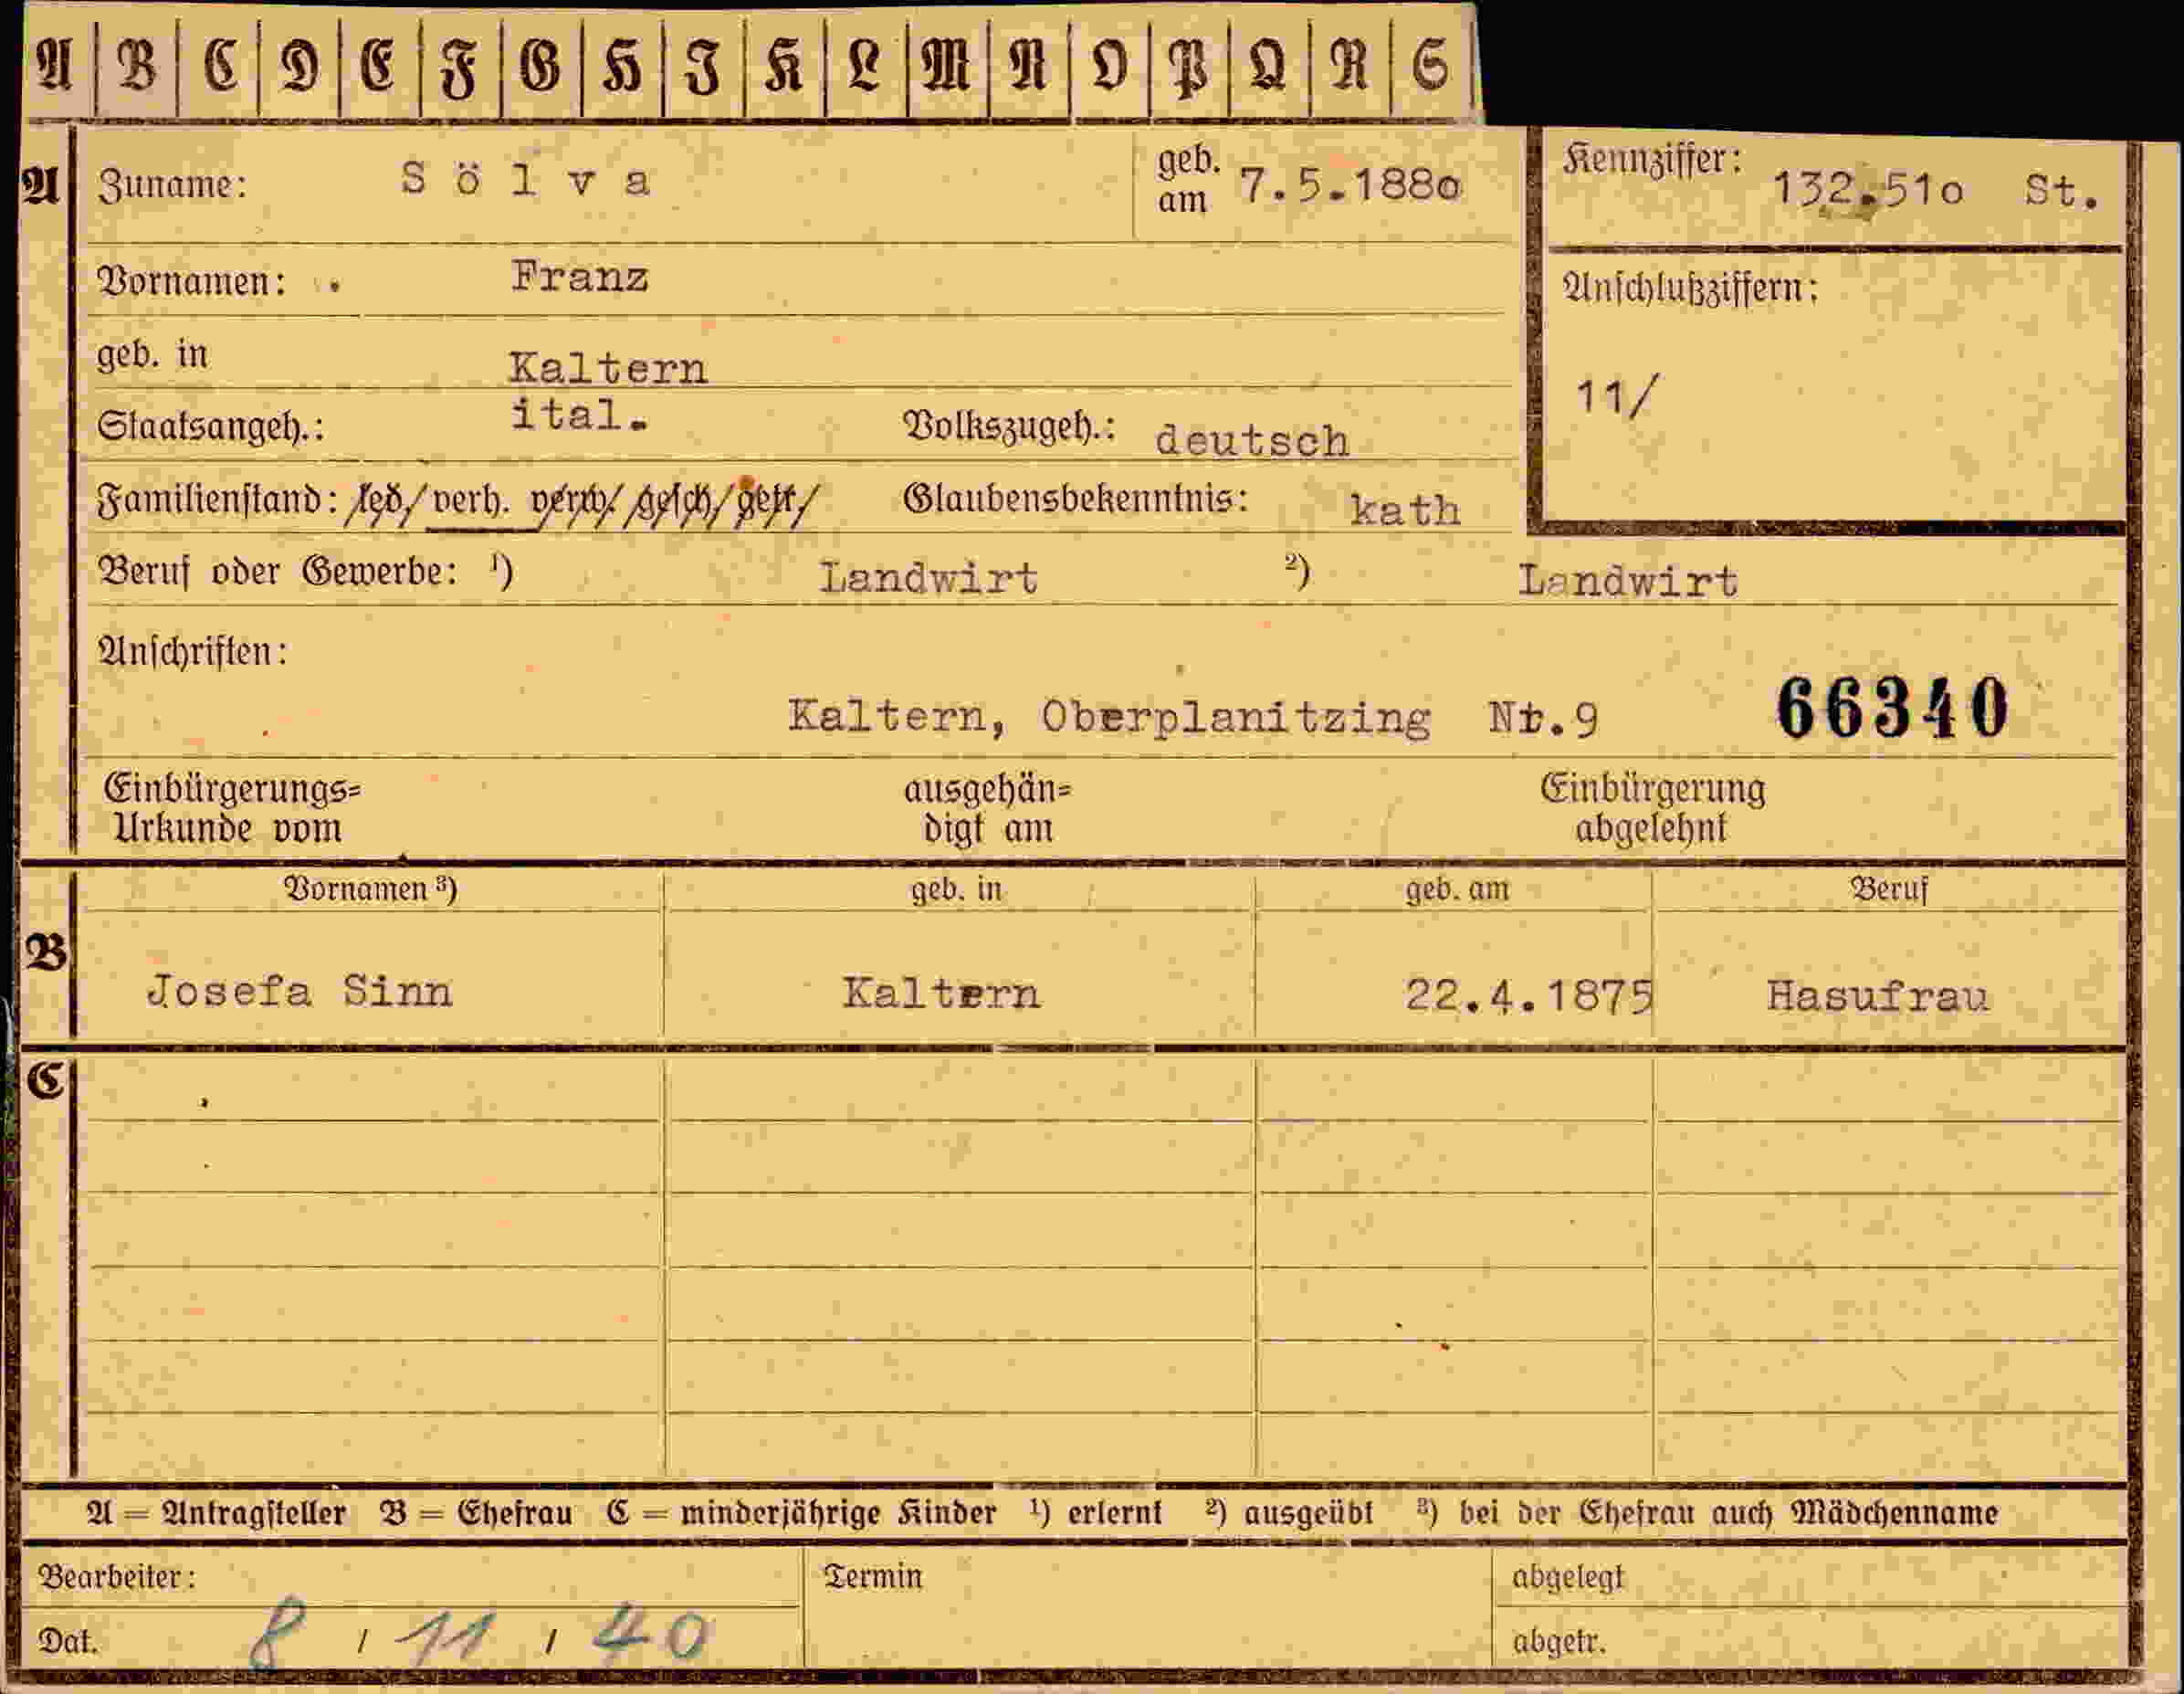 A B C D E F G H I K L M N O P Q R S
A Zuname: Sölva geb. am 7.5.188o Kennziffer: 132.51o St.
Vornamen: Franz
Anschlußziffern:
geb. in Kaltern
11/
Staatsangeh.: ital. Volkszugeh.: deutsch
Familienstand: led/ verh. verw/ gesch/ getr/ Glaubensbekenntnis: kath
Beruf oder Gewerbe: ¹) Landwirt ²) Landwirt
Anschriften:
Kaltern, Oberplanitzing Nr.9 66340
Einbürgerungs= ausgehän= Einbürgerung
Urkunde vom digt am abgelehnt
Vornamen ³) geb. in geb. am Beruf
B Josefa Sinn Kaltern 22.4.1875 Hasufrau
C
A = Antragsteller B = Ehefrau C = minderjährige Kinder ¹) erlernt ²) ausgeübt ³) bei der Ehefrau auch Mädchenname
Bearbeiter: Termin abgelegt
Dat. 8 / 11 / 40 abgetr.